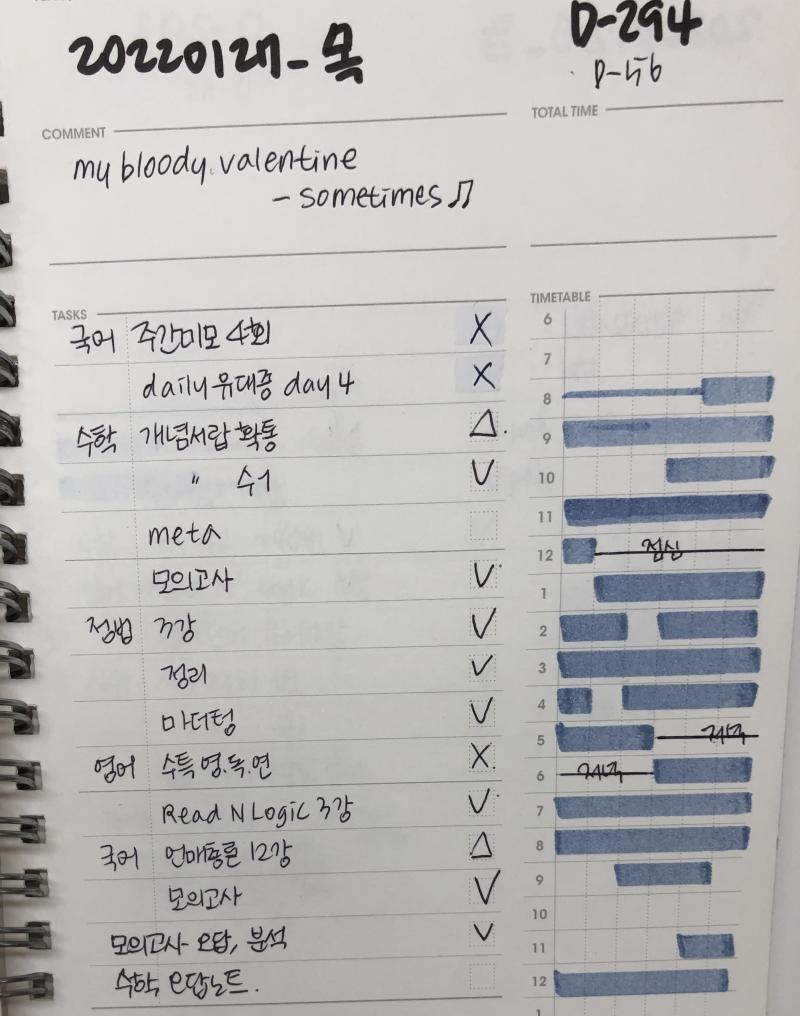 D-294
D-56
COMMENT
TOTAL TIME
my bloody valentine
- sometimes ♫
TASKS
TIMETABLE
국어 주간미모 4회 X
daily 유대종 day 4 X
수학 개념서랍 확통 △
" 수1 V
meta
모의고사 V
정법 3강 V
정리 V
마더텅 V
영어 수특 영.독.연 X
Read N Logic 3강 V
국어 언매총론 12강 △
모의고사 V
모의고사 오답, 분석 V
수학 오답노트.
6
7
8
9
10
11
12 점심
1
2
3
4
5 저녁
6 저녁
7
8
9
10
11
12
1